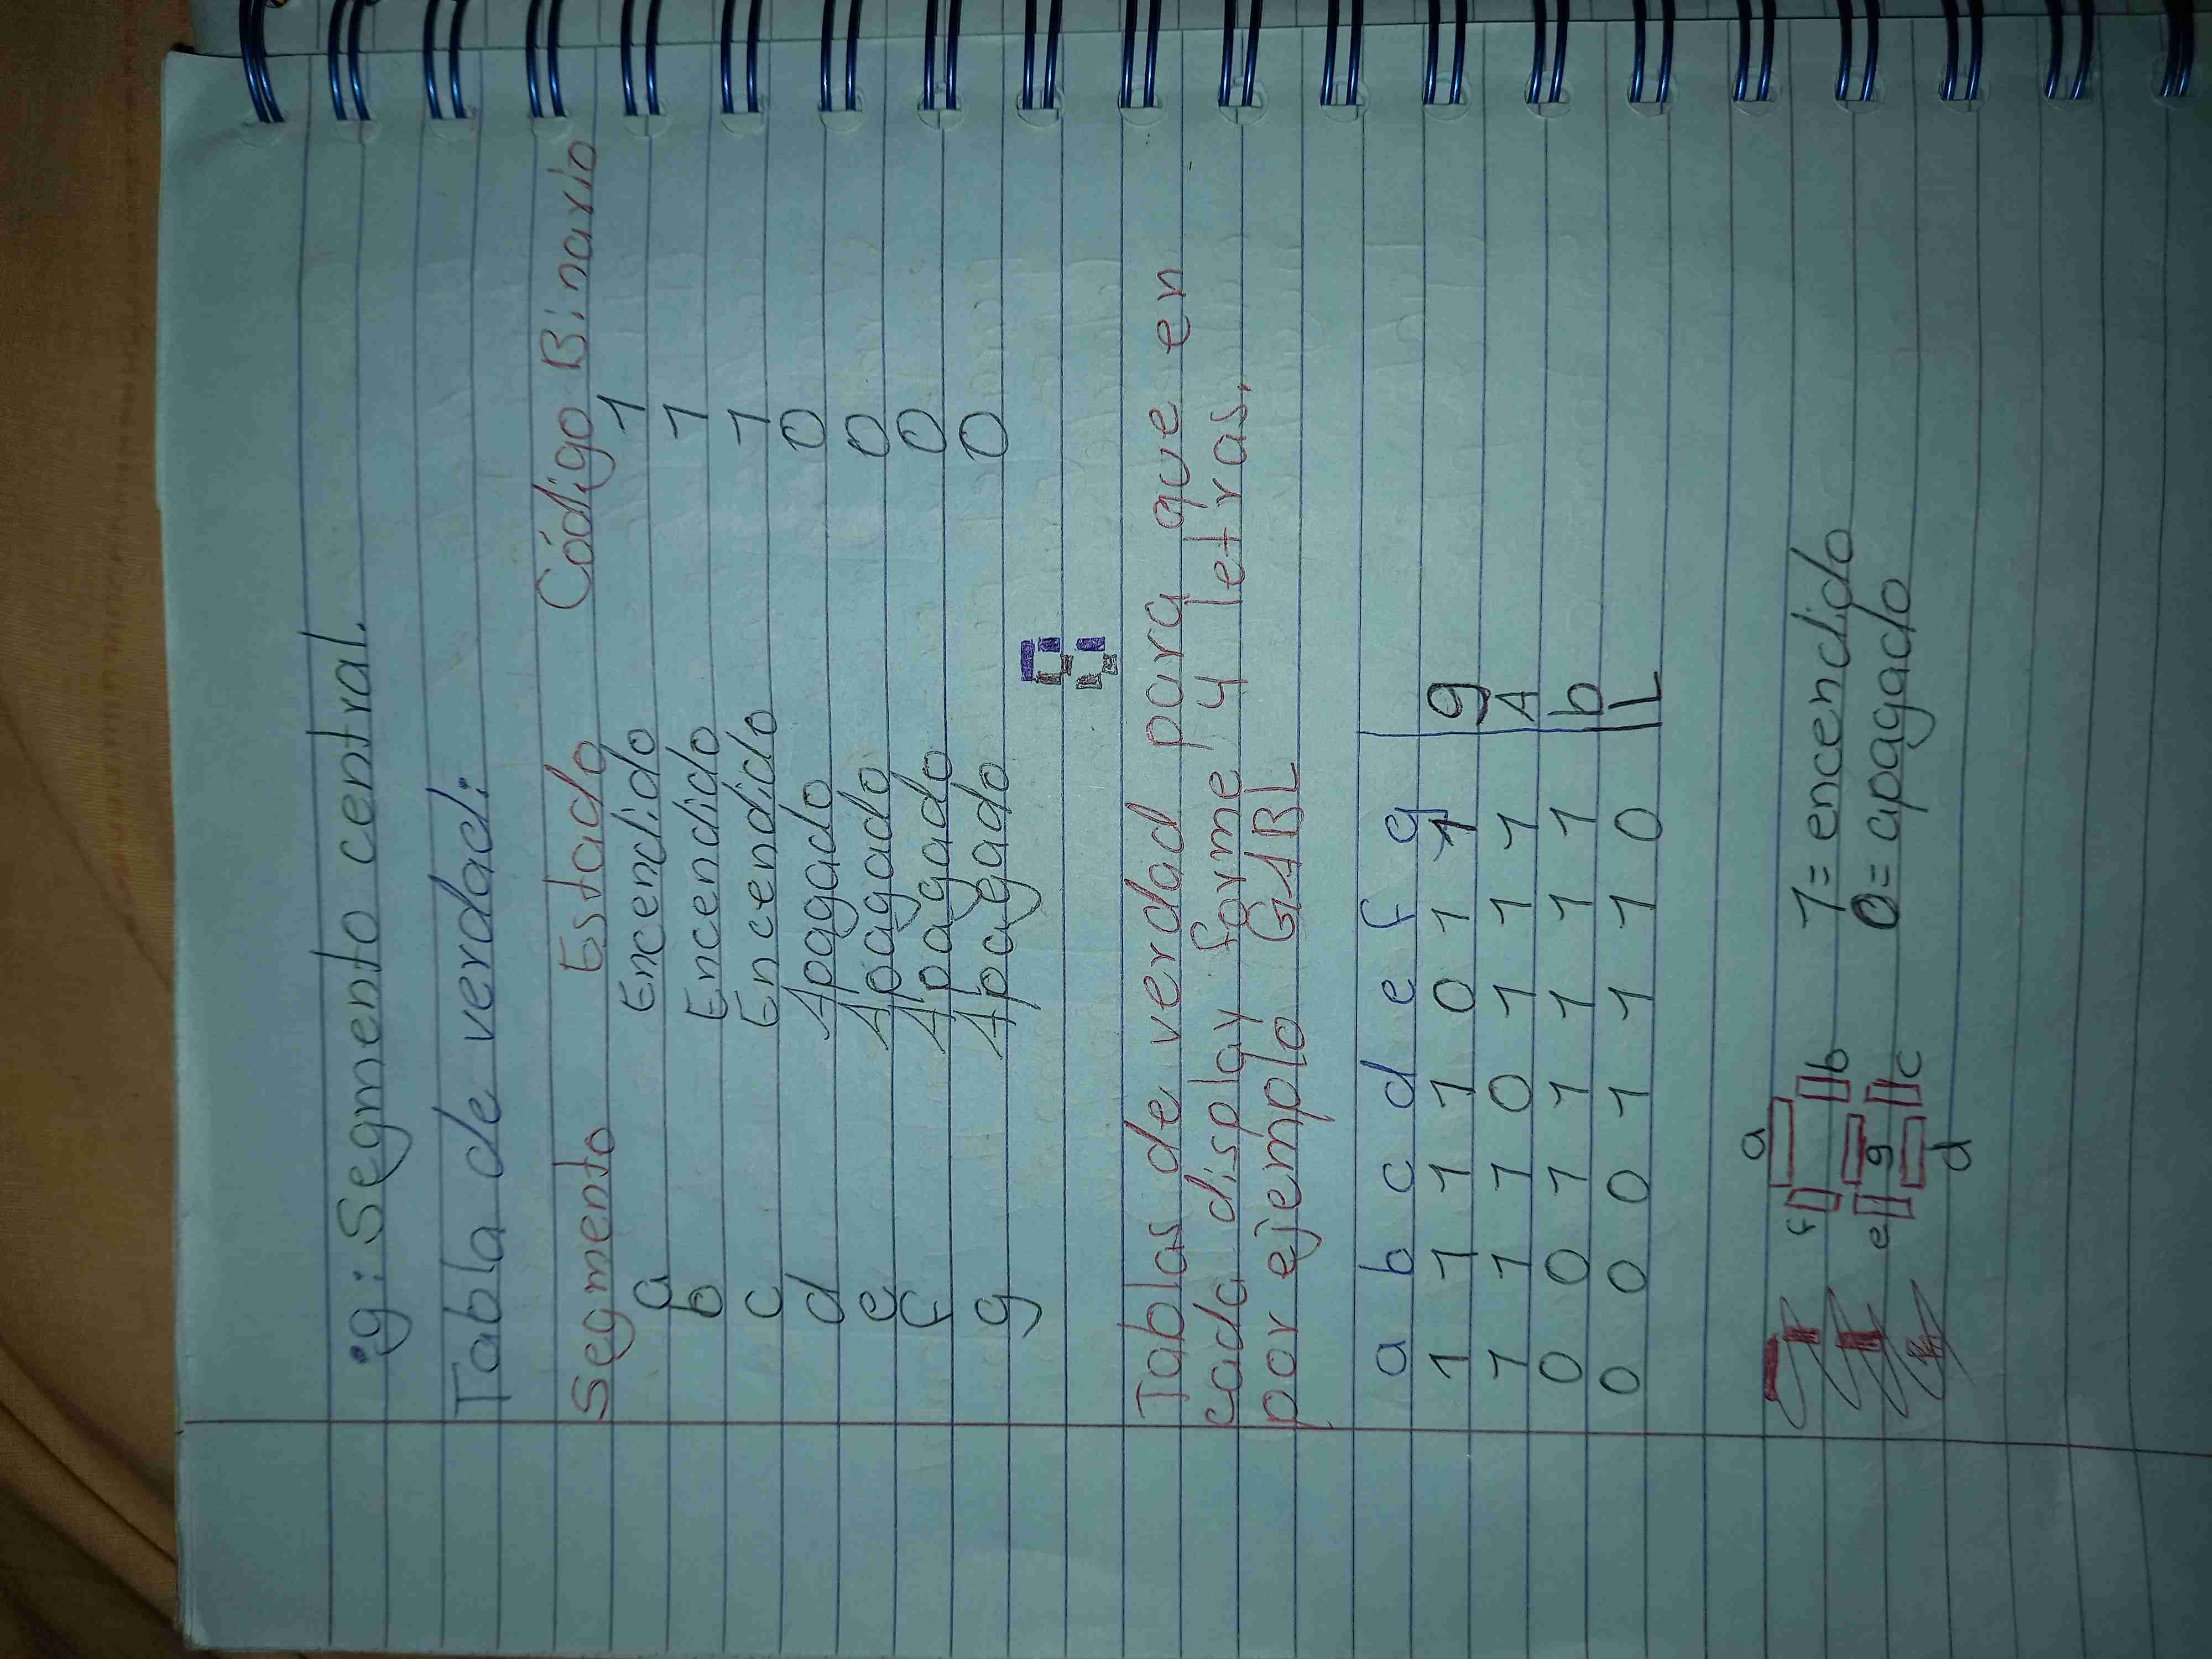 •g: Segmento central.
Tabla de verdad:
Segmento Estado Código Binario
a Encendido 1
b Encendido 1
c Encendido 1
d Apagado 0
e Apagado 0
f Apagado 0
g Apagado 0
Tablas de verdad para que en
cada display forme 4 letras.
por ejemplo GABL
a b c d e f g
1 1 1 1 0 1 1 g
1 1 1 0 1 1 1 A
0 0 1 1 1 1 1 b
0 0 0 1 1 1 0 L
a
f b 1= encendido
e g c 0= apagado
d